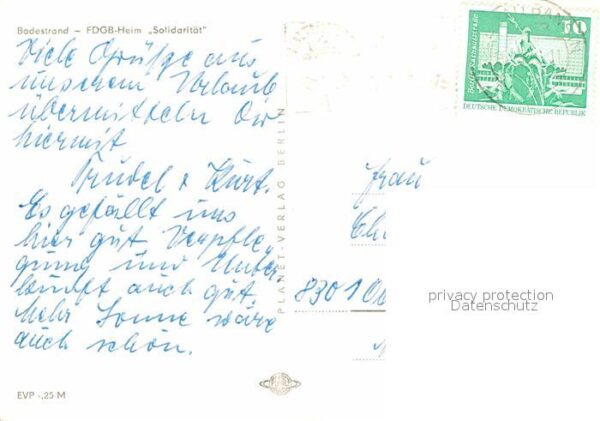 Badestrand – FDGB-Heim „Solidarität"
Viele Grüße aus
unserem Urlaub
übermitteln Dir
hiermit
Trudel & Kurt.
Es gefällt uns
hier gut. Verpfle-
gung und Unter-
kunft auch gut.
Mehr Sonne wäre
auch schön.
EVP -,25 M
PLANET-VERLAG BERLIN
10
Berlin, Rathausstraße
DEUTSCHE DEMOKRATISCHE REPUBLIK
Frau
8301
privacy protection
Datenschutz